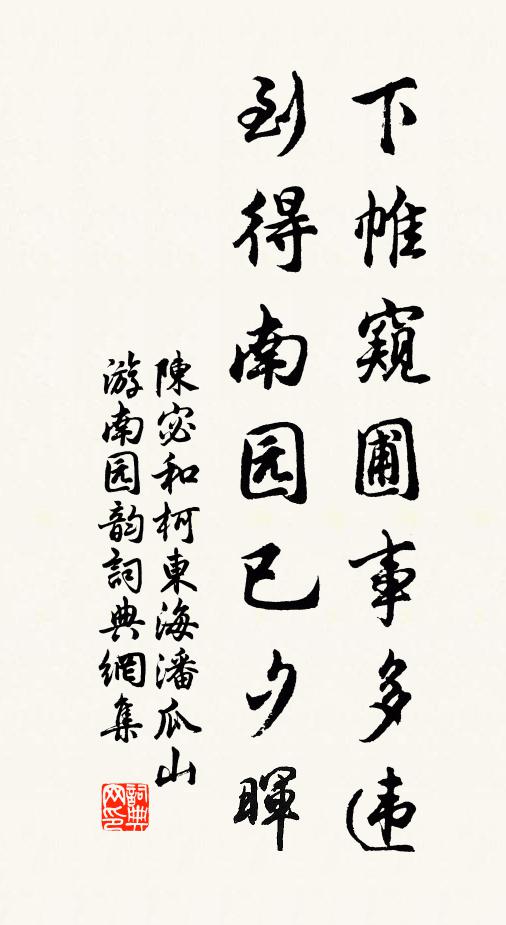 下帷窺圃事多违
到得南园已夕暉
陳宓和柯東海潘瓜山
游南园韵詞典網集
詞典网印